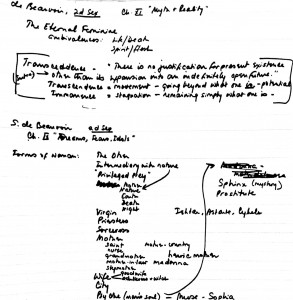 de Beauvoir, 2d Sex Ch. XI "Myth & Reality"
The Eternal Feminine
Ambivalences: Life/Death
Spirit/flesh
Transcendence - "There is no justification for present existence
other than its expansion into an indefinitely open future."
Transcendence = movement - going beyond what one is - potential
Immanence = stagnation - remaining simply what one is -
S. de Beauvoir 2d Sex
Ch. IX "Dreams, Fears, Idols"
Forms of Woman: The Other
Intermediary with nature
"Privileged Prey"
Nature
Earth
Death
Night
Sphinx (mystery)
Prostitute
Virgin Ishtar, Astarte, Cybele
Priestess
Sorceress
Mother
saint mother-country
nurse
grandmother heroic mother
mother-in-law madonna
stepmother
Wife
City
Psyche (man's soul) = Muse - Sophia